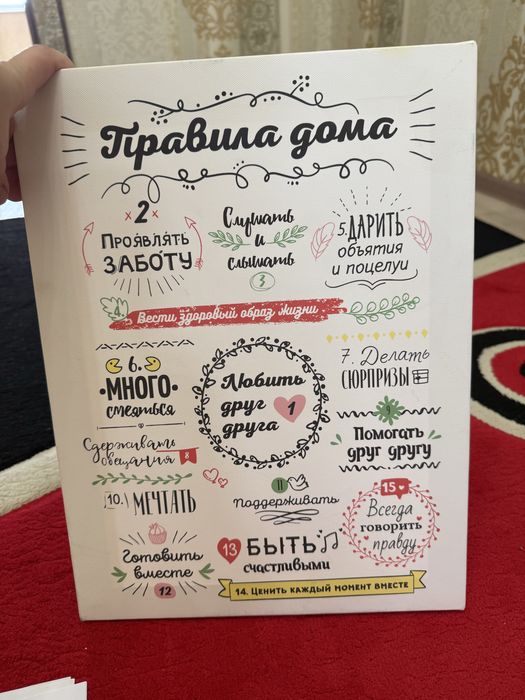 Правила дома
2
Проявлять
ЗАБОТУ
Слушать
и
слышать
3
5. ДАРИТЬ
объятия
и поцелуи
4. Вести здоровый образ жизни
6.
МНОГО
смеяться
Любить
друг 1
друга
7. Делать
СЮРПРИЗЫ
Сдерживать
обещания 8
9
Помогать
друг другу
10. МЕЧТАТЬ
11
Поддерживать
15
Всегда
говорить
правду
Готовить
вместе
12
13 БЫТЬ
счастливыми
14. ЦЕНИТЬ КАЖДЫЙ МОМЕНТ ВМЕСТЕ